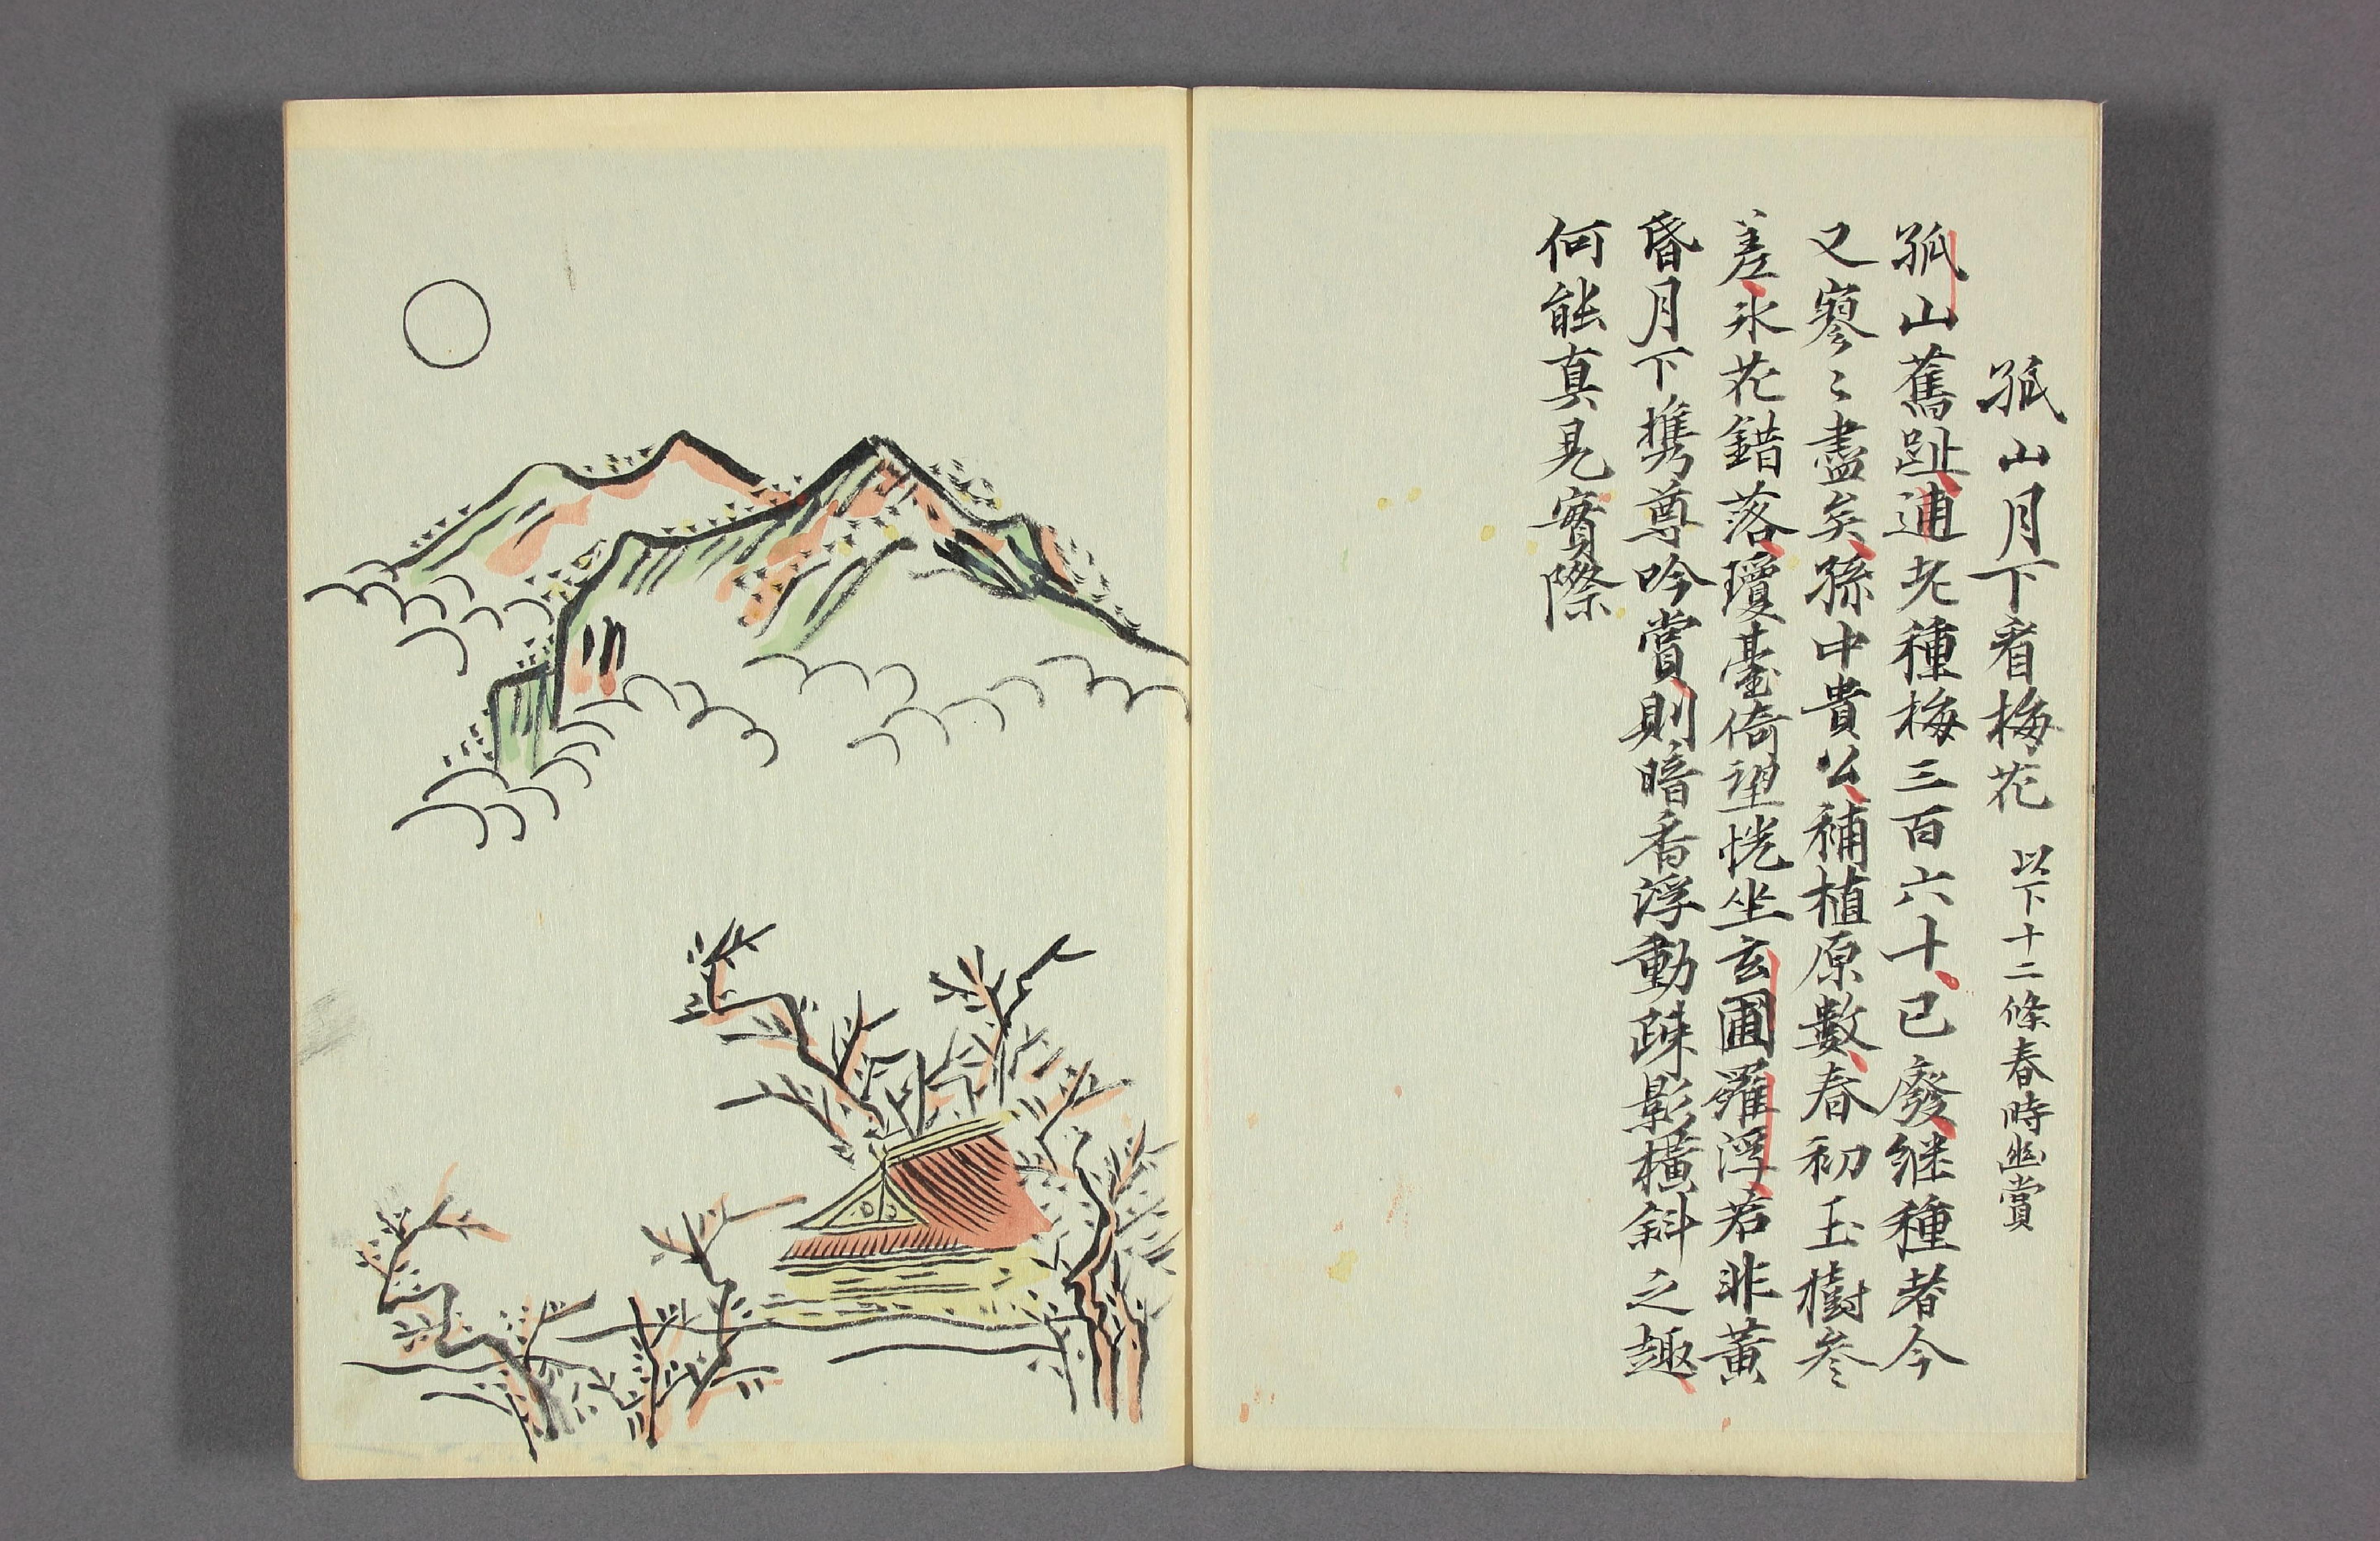 孤山月下看梅花 以下十二條春時幽賞
孤山舊趾逋老種梅三百六十已廢継種者今
又寥〻盡矣孫中貴公補植原數春初玉樹參
差氷花錯落瓊臺倚望恍坐玄圃羅浮若非黃
昏月下携尊吟賞則暗香浮動疎影橫斜之趣
何能真見實際